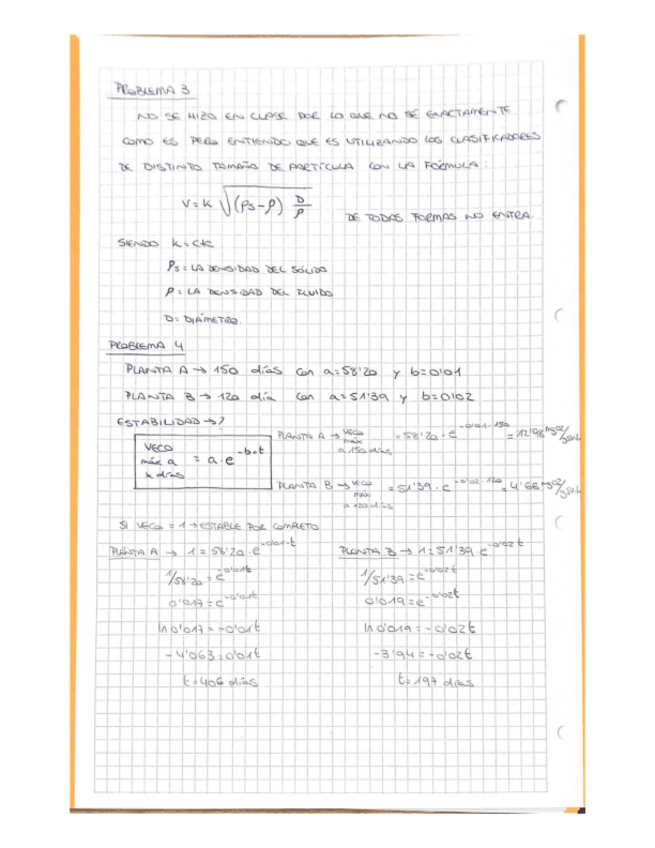 PROBLEMA 3
NO SE HIZO EN CLASE POR LO QUE NO SÉ EXACTAMENTE
COMO ES PERO ENTIENDO QUE ES UTILIZANDO LOS CLASIFICADORES
DE DISTINTO TAMAÑO DE PARTÍCULA CON LA FÓRMULA:
V = K √(ρs-ρ) D/ρ
DE TODAS FORMAS NO ENTRA.
SIENDO K = Cte
ρs = LA DENSIDAD DEL SÓLIDO
ρ = LA DENSIDAD DEL FLUIDO
D = DIÁMETRO.
PROBLEMA 4
PLANTA A → 150 días con a = 58'20 y b = 0'01
PLANTA B → 120 día con a = 51'39 y b = 0'02
ESTABILIDAD → ?
VECO máx a x días = a · e^-b·t
PLANTA A → VECO máx a 150 días = 58'20 · e^-0'01·150 = 12'98 mgO2/
PLANTA B → VECO máx a 120 días = 51'39 · e^-0'02·120 = 4'66 mgO2/
SI VECO = 1 → ESTABLE POR COMPLETO
PLANTA A → 1 = 58'20 · e^-0'01·t
PLANTA B → 1 = 51'39 · e^-0'02t
1/58'20 = e^-0'01t
1/51'39 = e^-0'02t
0'017 = e^-0'01t
0'019 = e^-0'02t
ln 0'017 = -0'01t
ln 0'019 = -0'02t
-4'063 = 0'01t
-3'94 = -0'02t
t = 406 días
t = 197 días